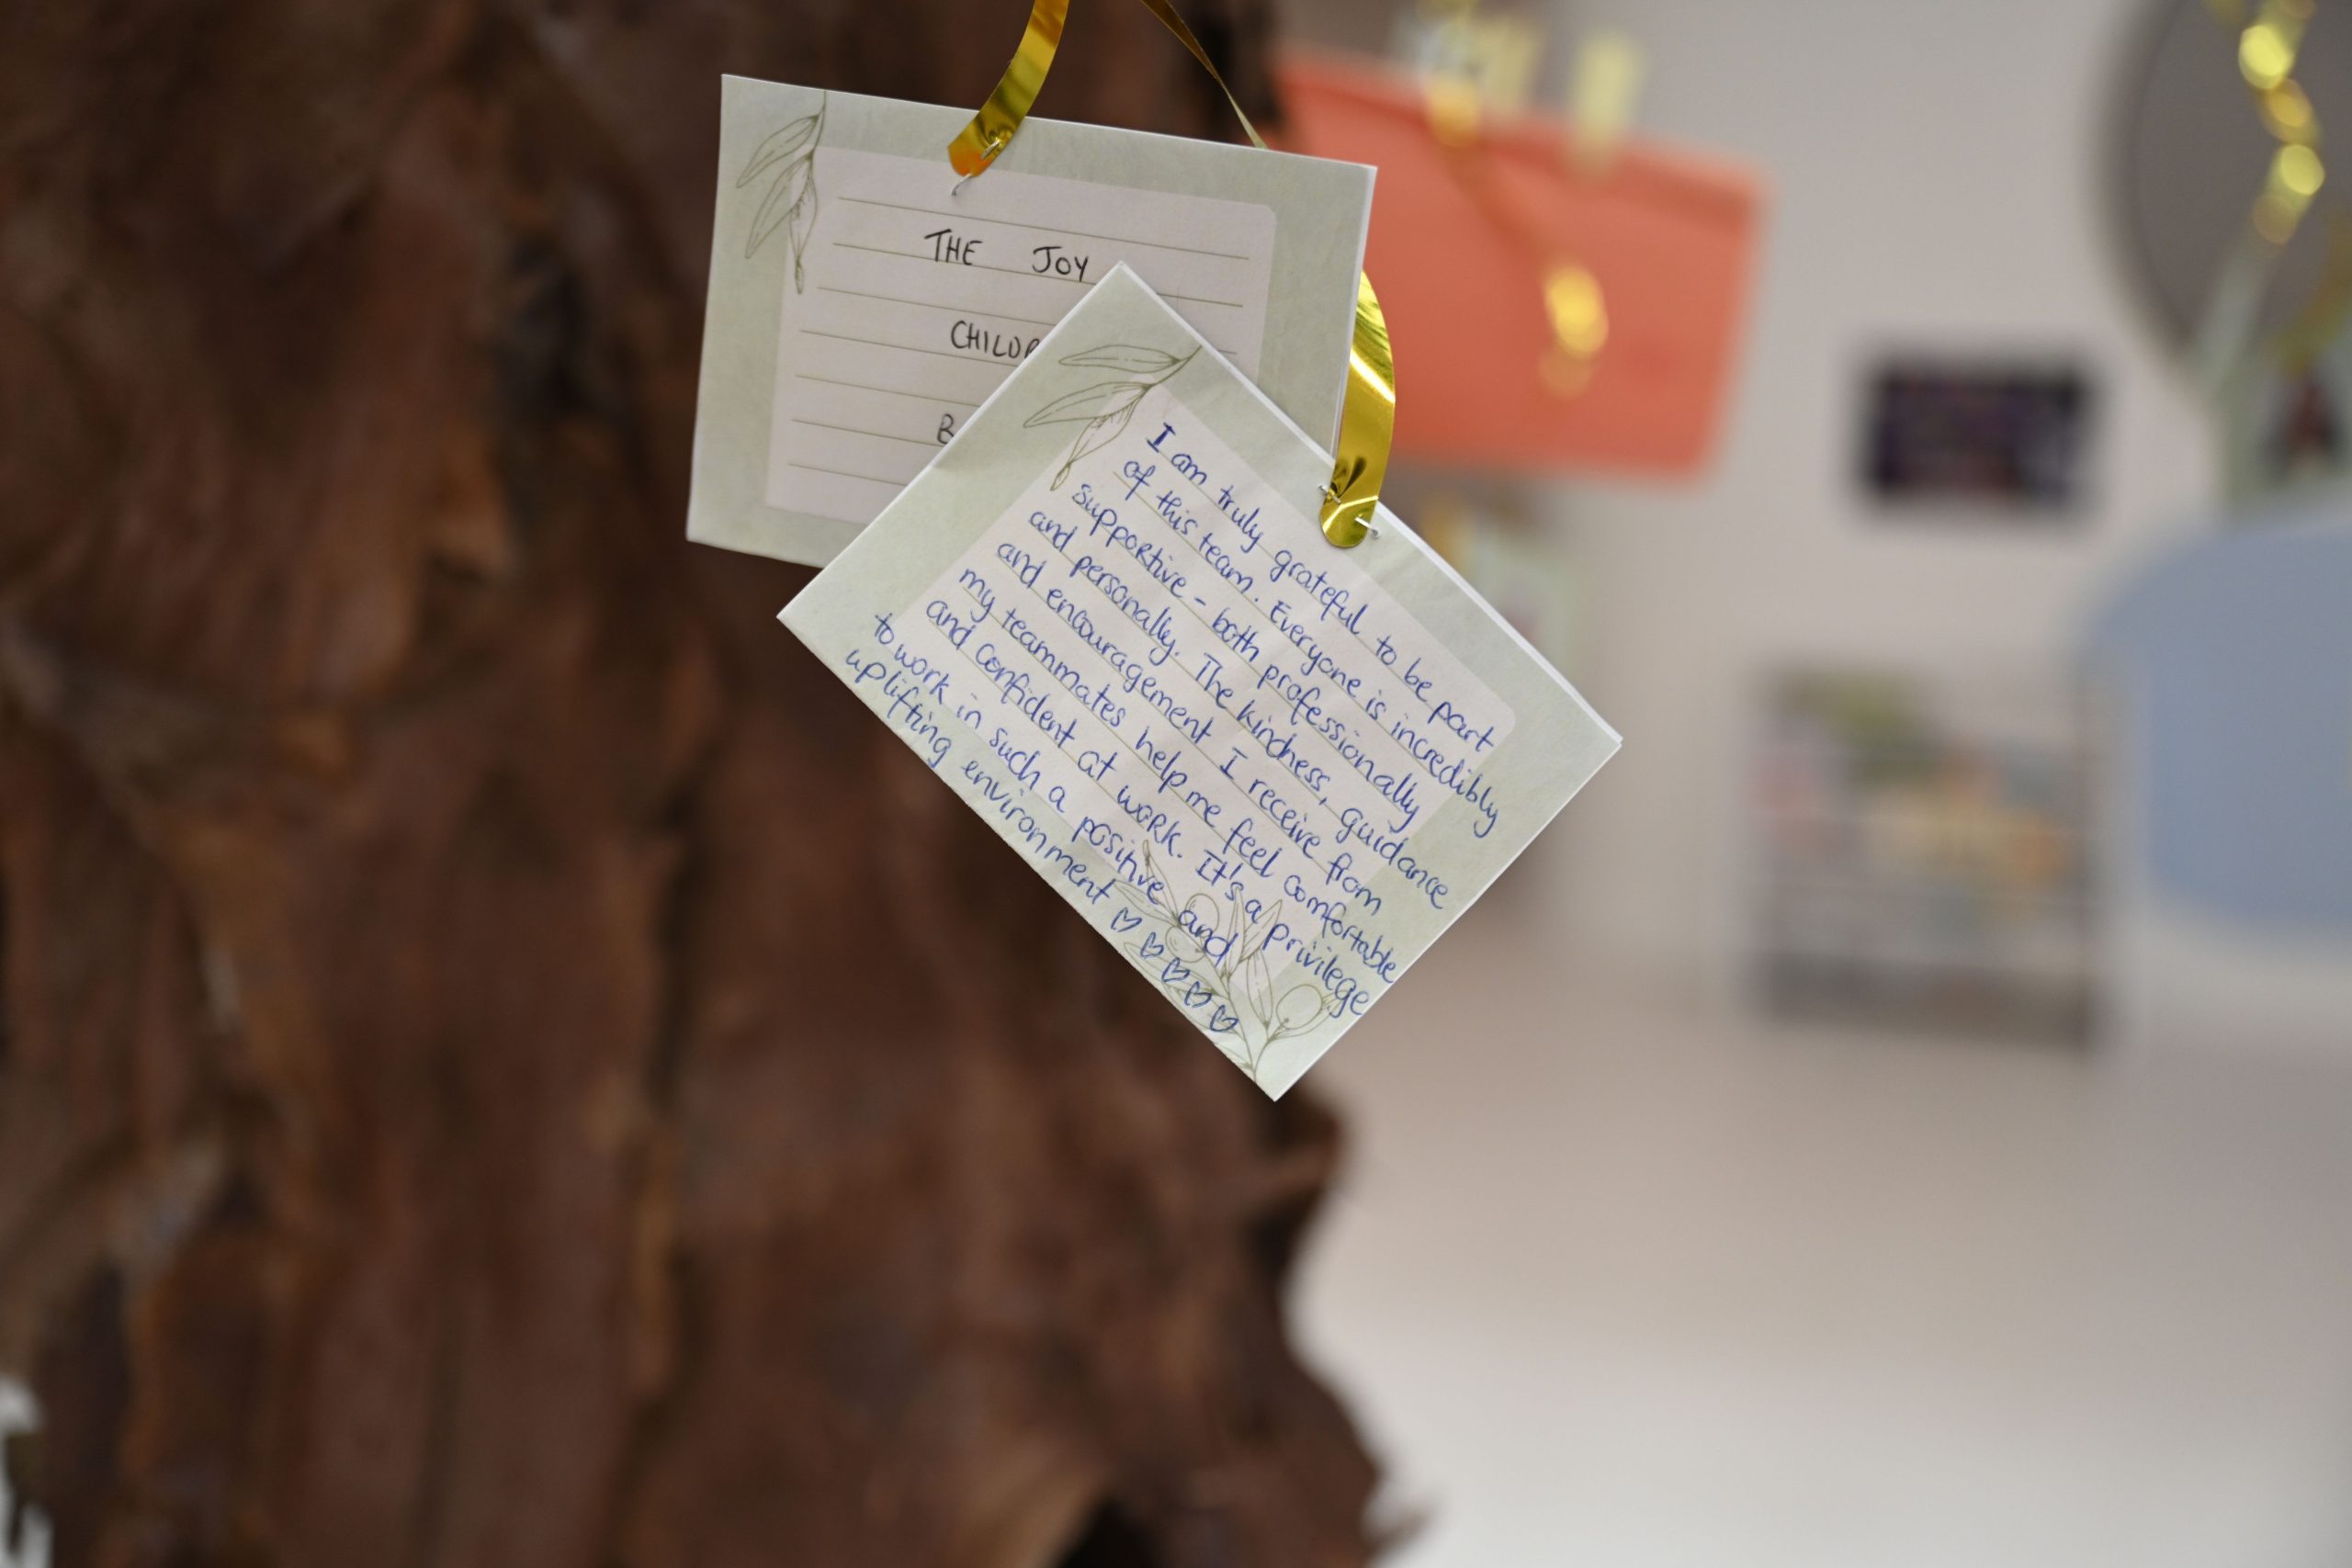 THE JOY
CHILDR
B
I am truly grateful to be part
of this team. Everyone is incredibly
supportive - both professionally
and personally. The kindness, guidance
and encouragement I receive from
my teammates help me feel comfortable
and confident at work. It's a privilege
to work in such a positive and
uplifting environment ♡♡♡♡♡